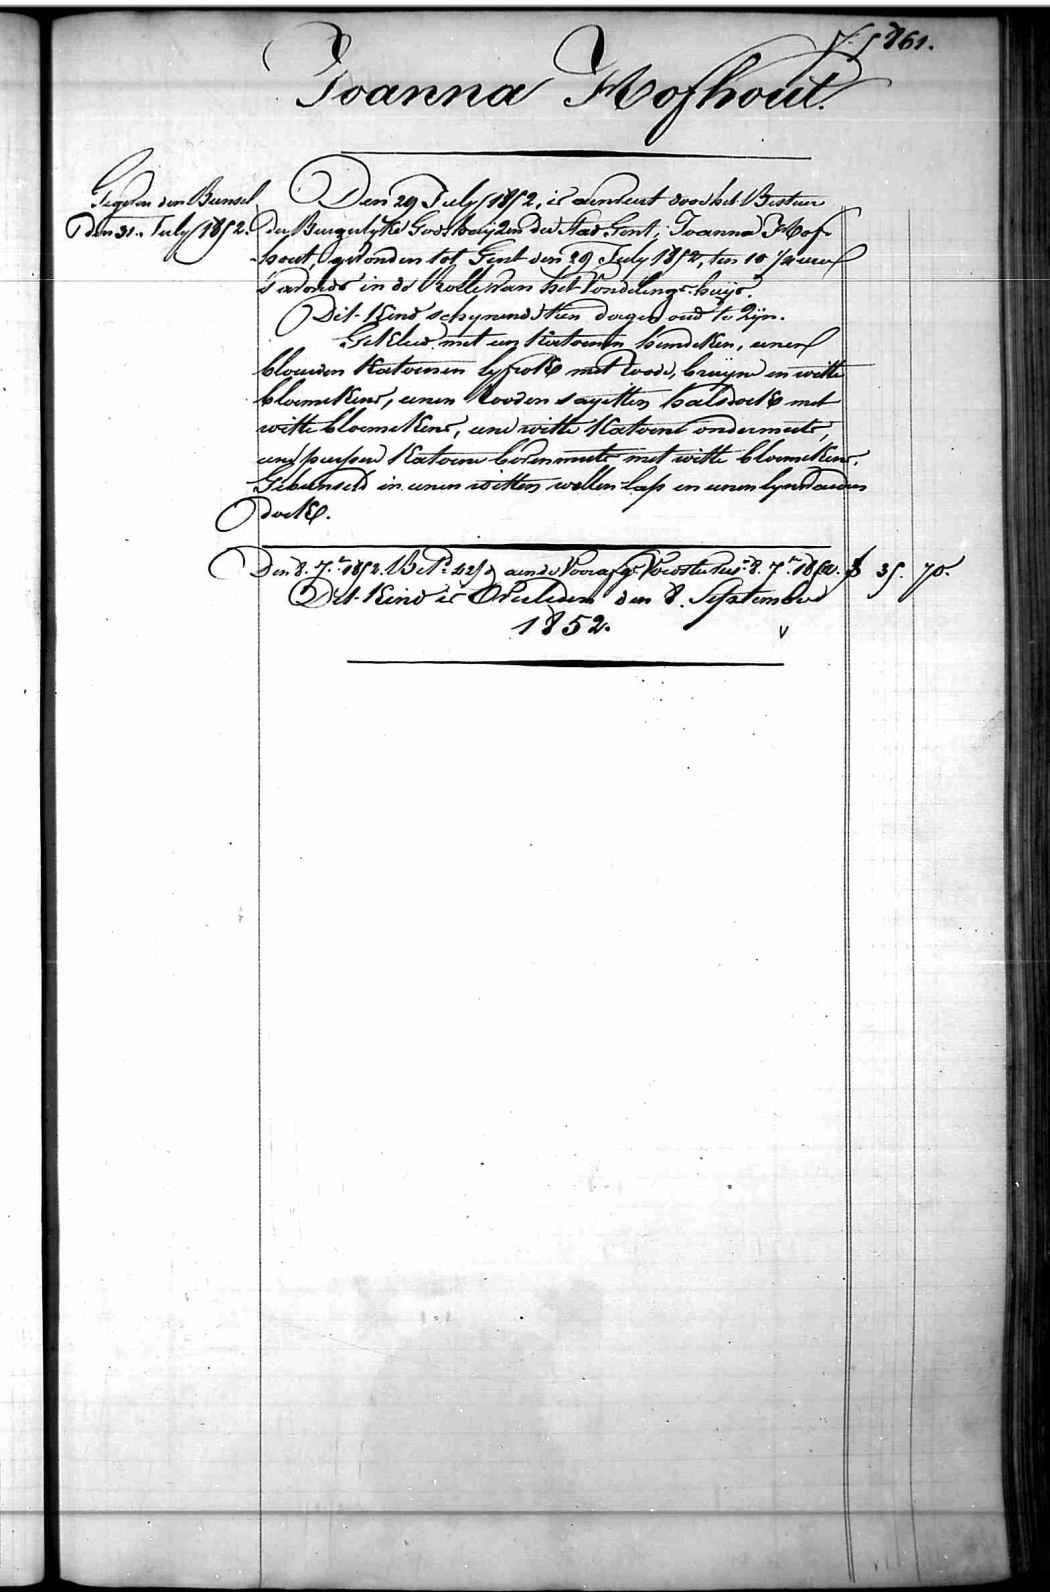 861.
Joanna Hofhout.
Gegeven den Bunsel
Den 31. July 1852.
Den 29 July 1852, is aenveert door het Bestuer
der Burgerlyke Godshuyzen der Stad Gent, Joanna Hof-
hout, gevonden tot Gent den 29 July 1852, ten 10 ¼ uren
s'avonds in de Rolle van het Vondelings-huys.
Dit Kind schynende tien dagen oud te Zyn.
Gekleed met een Katoenen hemdeken, eenen
blauwen Katoenen lyfrok met roode, bruyne en witte
bloemekens, eenen rooden sayetten halsdoek met
witte bloemekens, eene witte Katoene ondermuts,
eene purpere Katoene bovenmuts met witte bloemekens.
Gebunseld in eenen witten wollen lap en eenen lynwaeden
doek.
Den 8. 7.er 1852. Bet. aen de Voorafge. Voedster 8. 7.er 1852. 35. 70.
Dit Kind is Overleden den 8. September
1852.